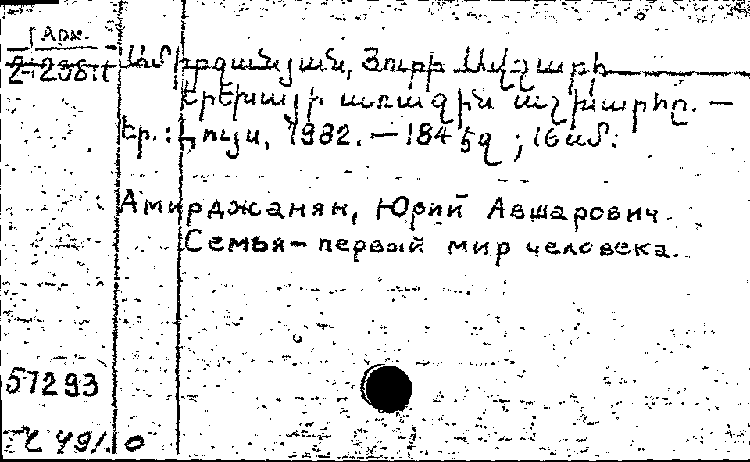 Арм.
2-12381
Ամիրզանյան, Յուրի Ավշարի
Երեխայի առաջին աշխարհը. —
Եր.: Լույս, 1982. — 184 էջ ; 16 սմ.
Амирджанян, Юрий Авшарович
Семья - первый мир человека.
57293